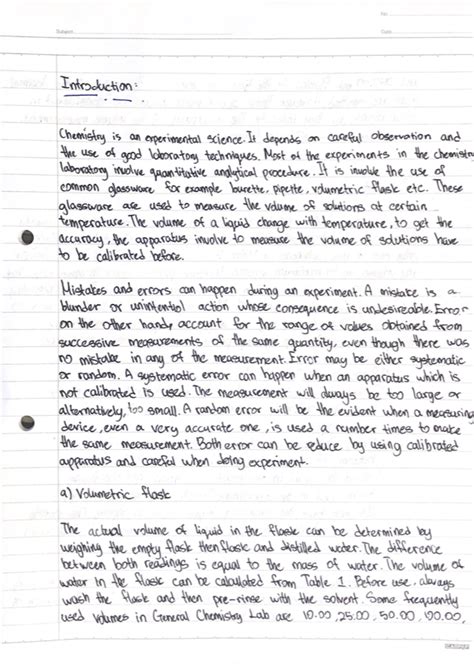 No.
Subject
Date
Introduction:
Chemistry is an experimental science. It depends on careful observation and
the use of good laboratory techniques. Most of the experiments in the chemistry
laboratory involve quantitative analytical procedure. It is involve the use of
common glassware for example burette, pipette, volumetric flask etc. These
glassware are used to measure the volume of solutions at certain
temperature. The volume of a liquid change with temperature, to get the
accuracy, the apparatus involve to measure the volume of solutions have
to be calibrated before.
Mistakes and errors can happen during an experiment. A mistake is a
blunder or unintentiol action whose consequence is undesireable. Error
on the other hand, account for the range of values obtained from
successive measurements of the same quantity, even though there was
no mistake in any of the measurement. Error may be either systematic
or random. A systematic error can happen when an apparatus which is
not calibrated is used. The measurement will always be too large or
alternatively, too small. A random error will be the evident when a measuring
device, even a very accurate one, is used a number times to make
the same measurement. Both error can be reduce by using calibrated
apparatus and careful when doing experiment.
a) Volumetric flask
The actual volume of liquid in the flask can be determined by
weighing the empty flask then flask and distilled water. The difference
between both readings is equal to the mass of water. The volume of
water in the flask can be calculated from Table 1. Before use, always
wash the flask and then pre-rinse with the solvent. Some frequently
used volumes in General Chemistry Lab are 10.00, 25.00, 50.00, 100.00,